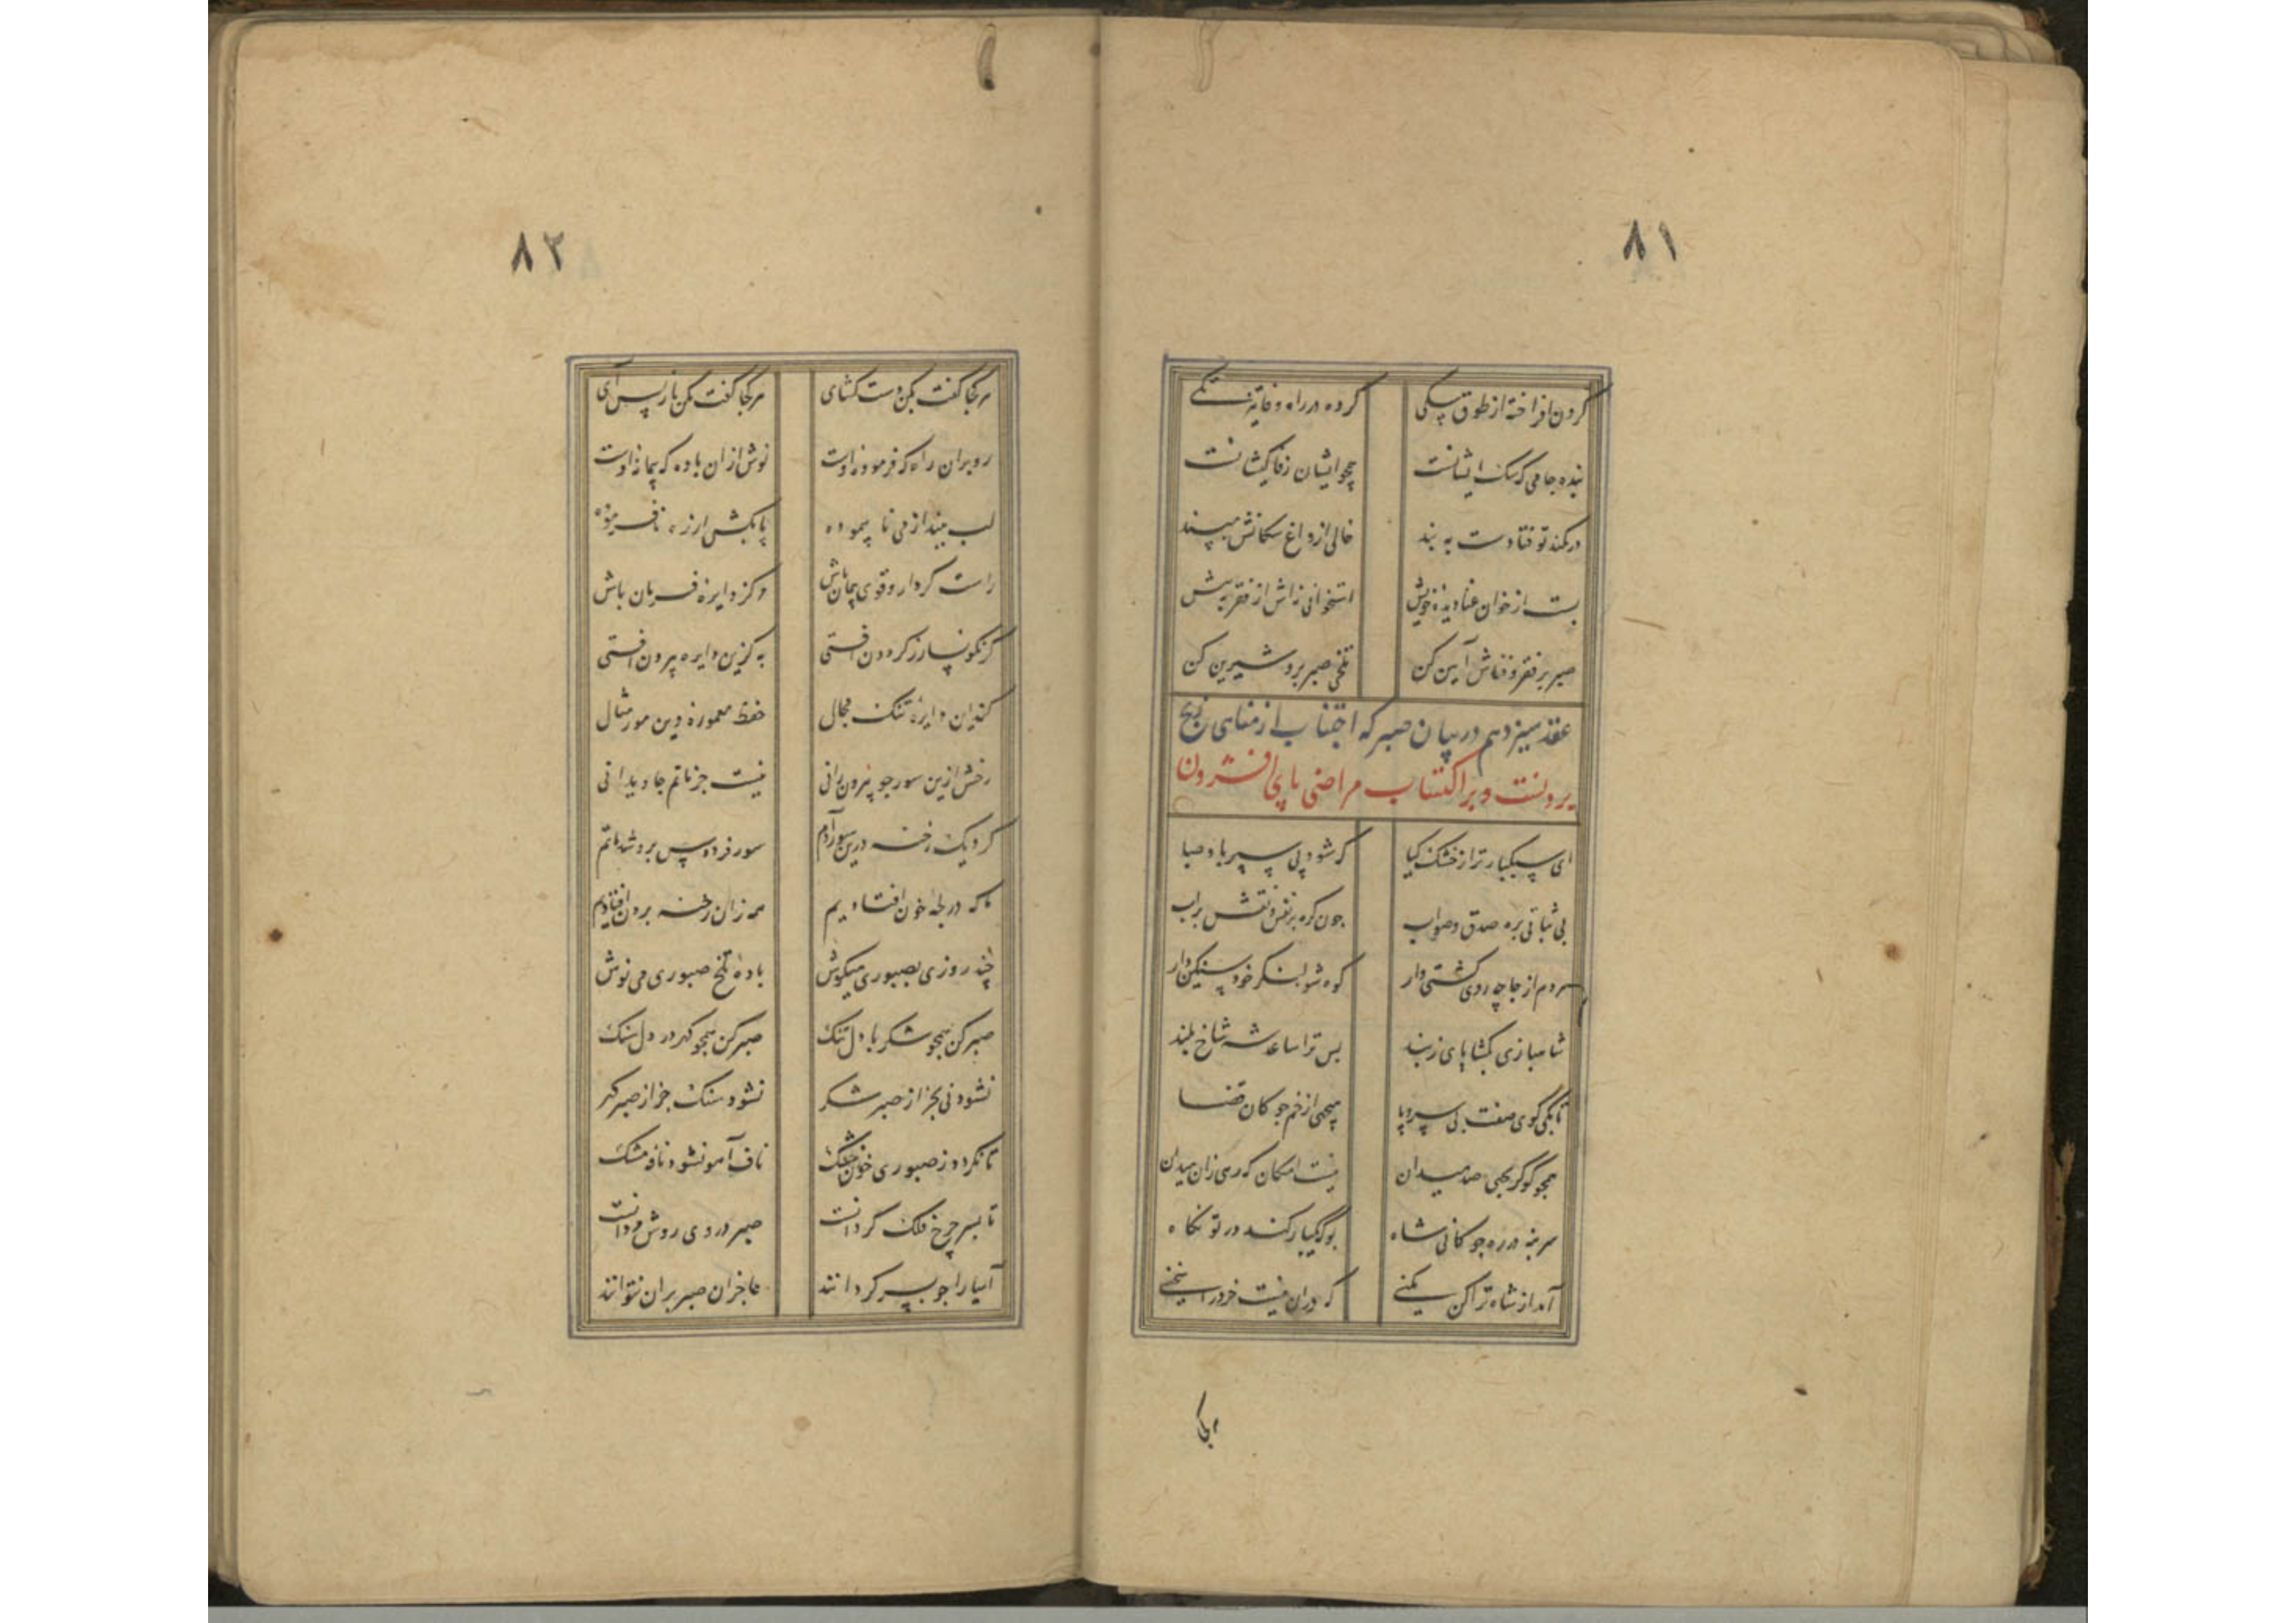 ۸۱
گردن افراخته از طوق سگی کرده در راه وفا تیز تگی
بنده جامی که سگ ایشانست همچو ایشان ز وفاکیشانست
در کمند تو فتادست به بند خالی از داغ سگانش مپسند
بست از خوان غنا دیده خویش استخوانی ز اش از فقر به پیش
صبر بر فقر و فناش آیین کن تلخی صبر برو شیرین کن
عقد سیزدهم در بیان صبر که اجتناب از مناهی رنج
بردنست و بر اکتساب مراضی پای افشردن
ای سبکبارتر از خشک گیا که شود پی سپر باد صبا
بی ثباتی بره صدق و صواب جون کره بر نفس و نقش بر آب
هردم از جا چه روی کشتی وار کوه شو لنگر خود سنگین دار
شاهبازی بگشا پای ز بند بس ترا ساعد شه شاخ بلند
تا بکی گوی صفت بی سر و پا میجهی از خم جوکان قضا
همجو کو گر بجهی صد میدان نیست امکان که رهی زان میدان
سر بنه در ره جوکانی شاه بو که یکبار کند در تو نکاه
آمد از شاه ترا کن مکنی که دران نیست خرد را سخنی
هر کجا
۸۲
هر کجا گفت بکن دست کشای هر کجا گفت مکن باز پس آی
رو بران راه که فرموده اوست نوش ازان باده که پیمانه اوست
لب ببند از می نا پیموده پا بکش از ره نافرموده
راست کردار و قوی پیمان باش مرکز دایره فرمان باش
گر نکونسار ز گردون افتی به کزین دایره بیرون افتی
کند این دایره تنک مجال حفظ معموره دین سور مثال
رخش ازین سور جو بیرون رانی نیست جز ماتم جاویدانی
کرد یک رخنه درین سور آدم سور فردوس برو شد ماتم
ما که در لجه خون افتادیم همه زان رخنه برون افتادیم
چند روزی بصبوری میکوش باده تلخ صبوری می نوش
صبر کن همچو شکر با دل تنک صبر کن همچو کهر در دل سنک
نشود نی بجز از صبر شکر نشود سنک جز از صبر کهر
تا نکردد ز صبوری خون خشک ناف آهو نشود نافه مشک
تا بسر چرخ فلک کردانست صبر در وی روش مردانست
آسیا را جو بسر کردانند عاجزان صبر بران نتوانند